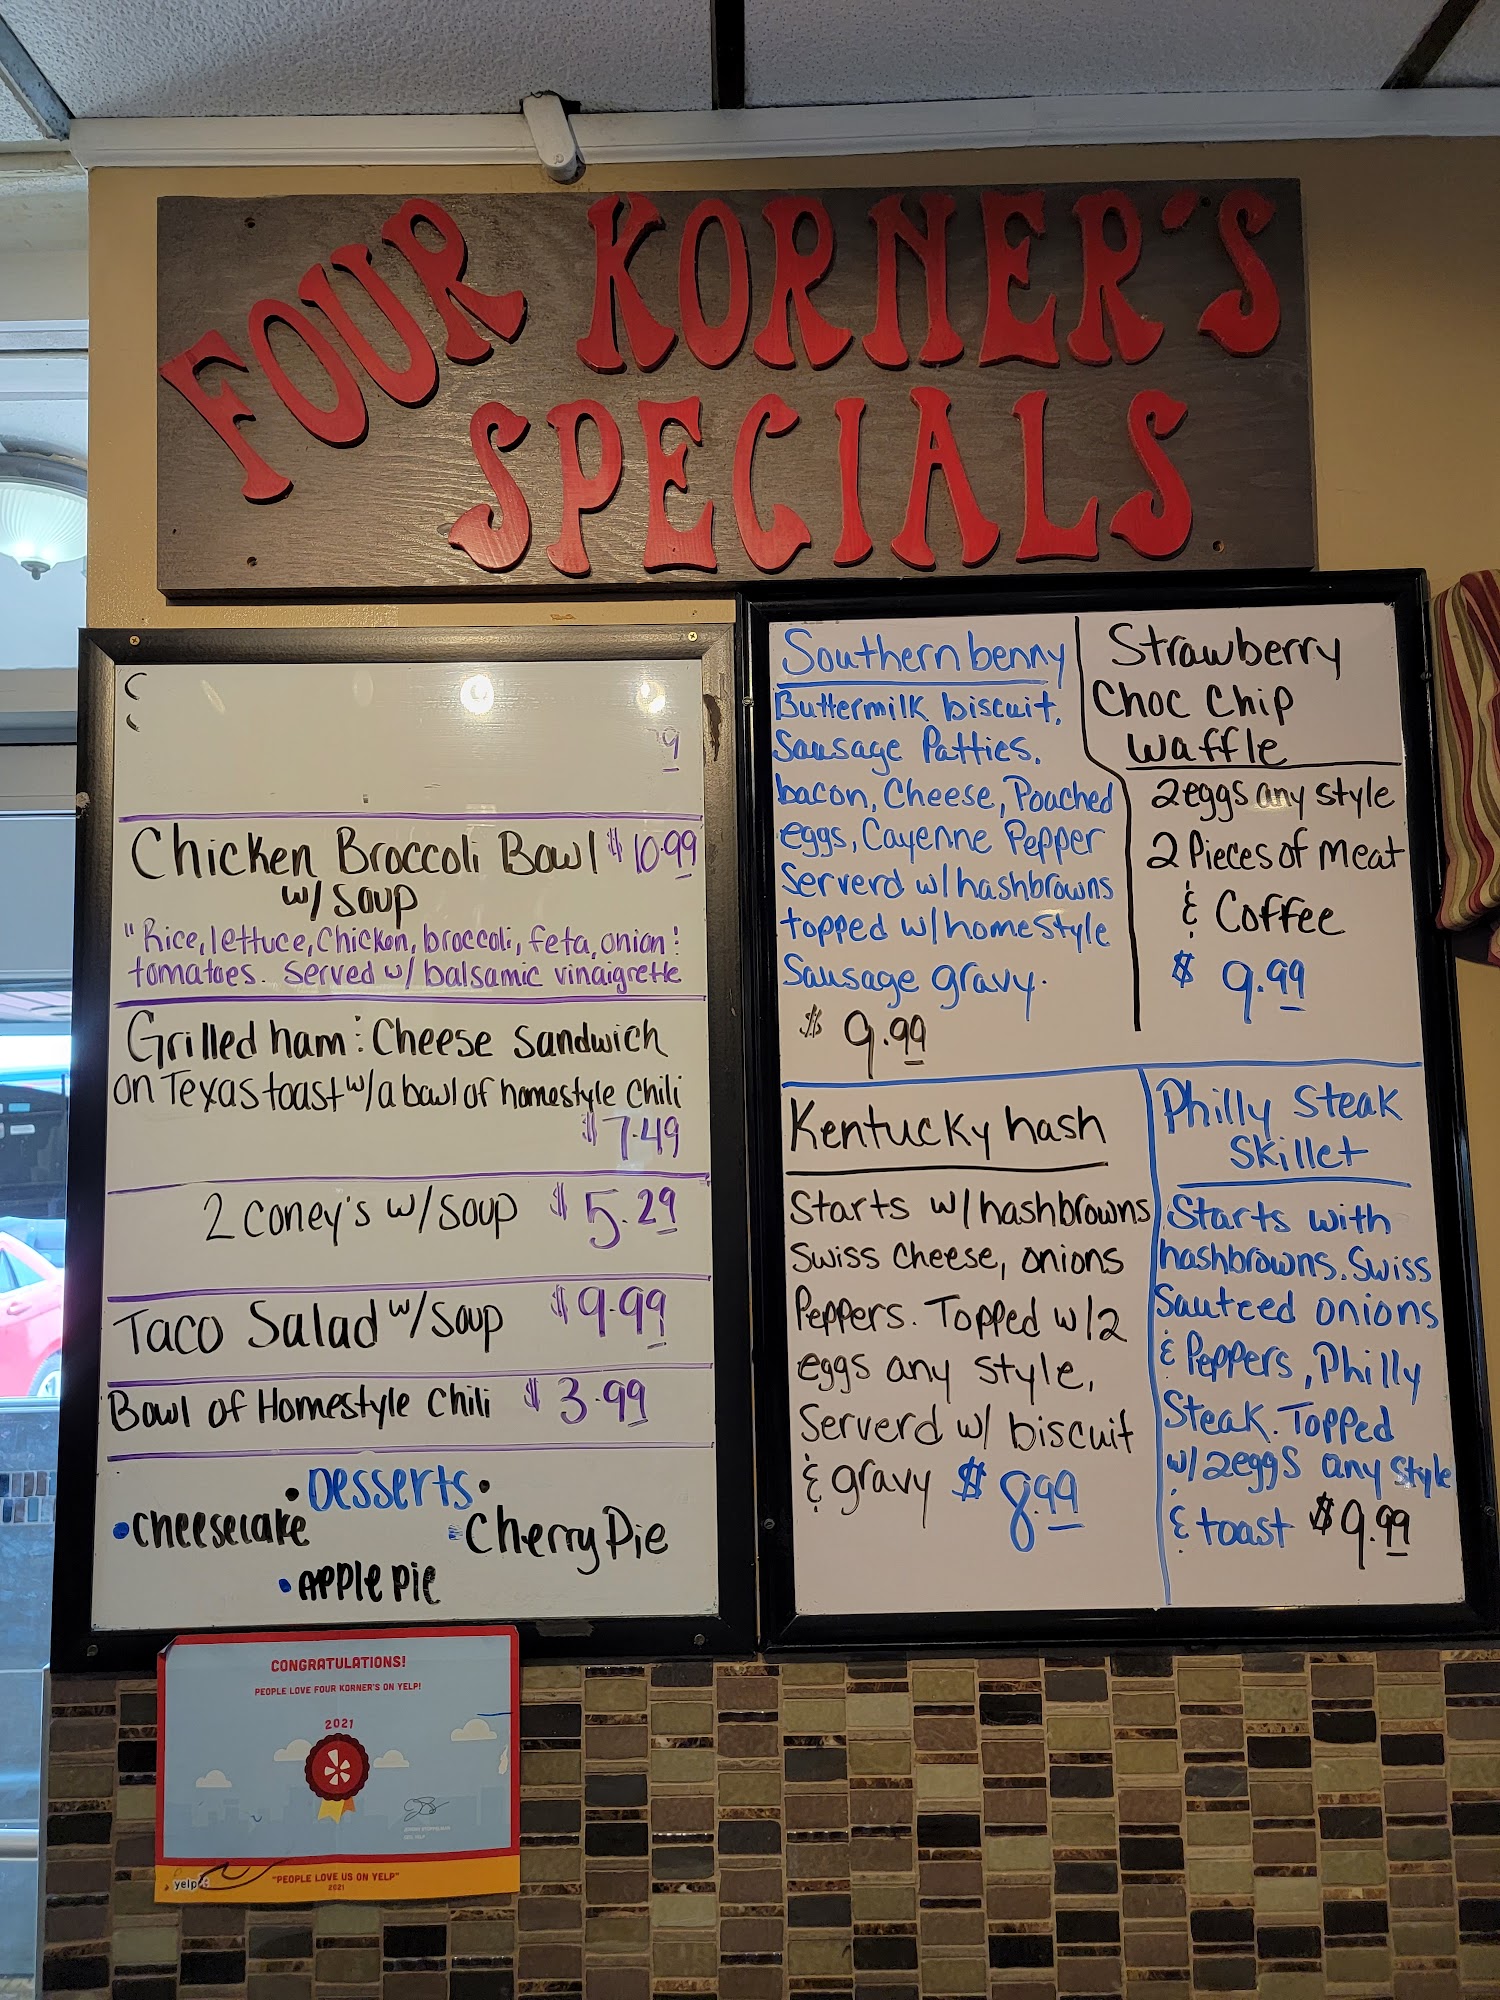 FOUR KORNER'S
SPECIALS
9
Chicken Broccoli Bowl $10.99
w/ soup
"Rice, lettuce, chicken, broccoli, feta, onion &
tomatoes. served w/ balsamic vinaigrette
Grilled ham & Cheese sandwich
on Texas toast w/ a bowl of homestyle Chili
$7.49
2 coney's w/ soup $5.29
Taco Salad w/ soup $9.99
Bowl of Homestyle Chili $3.99
• Desserts •
• cheesecake • Cherry Pie
• Apple pie
Southern benny
Buttermilk biscuit,
Sausage Patties,
bacon, Cheese, Poached
eggs, Cayenne Pepper
Serverd w/ hashbrowns
topped w/ homestyle
Sausage gravy.
$ 9.99
Strawberry
Choc Chip
Waffle
2 eggs any style
2 Pieces of meat
& Coffee
$ 9.99
Kentucky hash
Starts w/ hashbrowns
Swiss cheese, onions
Peppers. Topped w/ 2
eggs any style,
Serverd w/ biscuit
& gravy $ 8.99
Philly Steak
Skillet
Starts with
hashbrowns. Swiss
Sauteed onions
& Peppers, Philly
Steak. Topped
w/ 2 eggs any style
& toast $9.99
CONGRATULATIONS!
PEOPLE LOVE FOUR KORNER'S ON YELP!
2021
yelp
"PEOPLE LOVE US ON YELP"
2021